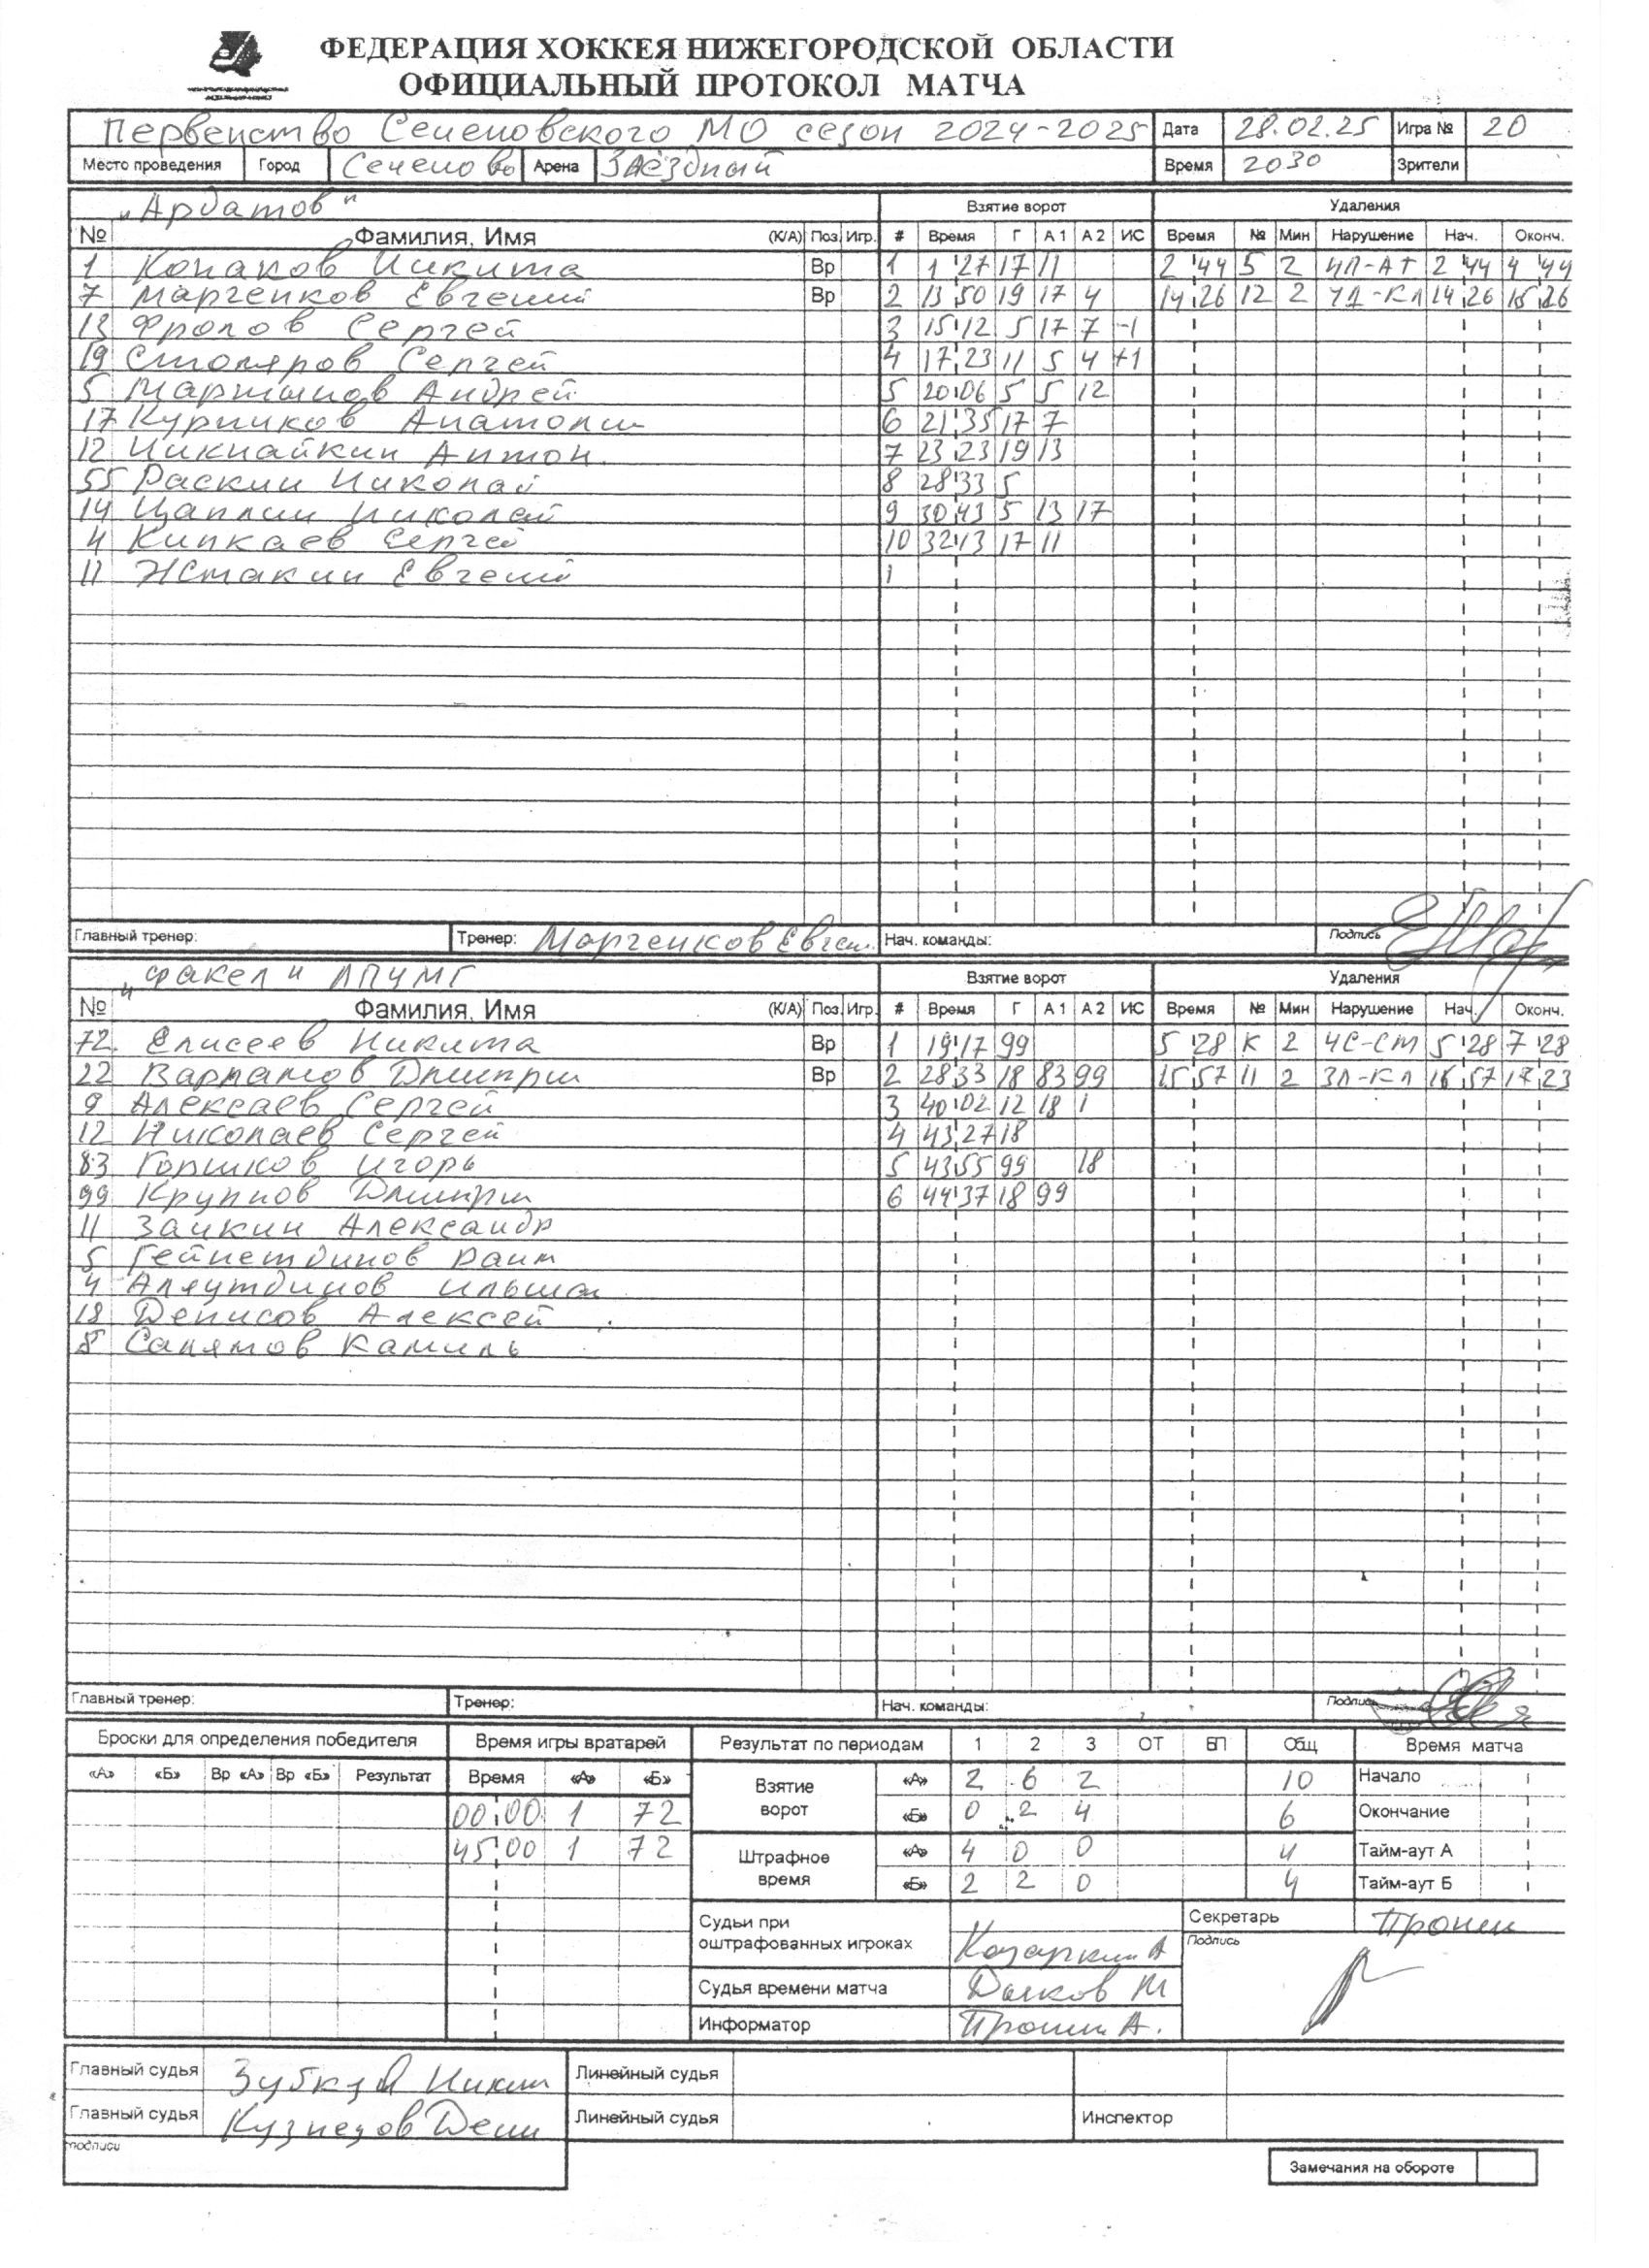 ФЕДЕРАЦИЯ ХОККЕЯ НИЖЕГОРОДСКОЙ ОБЛАСТИ
ОФИЦИАЛЬНЫЙ ПРОТОКОЛ МАТЧА
Первенство Сеченовского МО сезон 2024-2025 Дата 28.02.25 Игра № 20
Место проведения Город Сеченово Арена Звёздный Время 2030 Зрители
"Ардатов" Взятие ворот Удаления
№ Фамилия, Имя (К/А) Поз. Игр. # Время Г А1 А2 ИС Время № Мин Нарушение Нач. Оконч.
1 Конаков Никита Вр 1 1 27 17 11 2 44 5 2 2 44 4 44
7 Марченков Евгений Вр 2 13 50 19 17 4 14 26 12 2 14 26 15 26
13 Фролов Сергей 3 15 12 5 17 7 -1
19 Столяров Сергей 4 17 23 11 5 4 +1
5 Мартынов Андрей 5 20 06 5 5 12
17 Курников Анатолий 6 21 35 17 7
12 Антон 7 23 23 19 13
55 Раскин Николай 8 28 33 5
14 Цаплин Николай 9 30 43 5 13 17
4 Кипкаев Сергей 10 32 13 17 11
11 Евгений 1
Главный тренер: Тренер: Марченков Евген. Нач. команды: Подпись
"Факел" ЛПУМГ Взятие ворот Удаления
№ Фамилия, Имя (К/А) Поз. Игр. # Время Г А1 А2 ИС Время № Мин Нарушение Нач. Оконч.
72 Елисеев Никита Вр 1 19 17 99 5 28 К 2 5 28 7 28
22 Варламов Дмитрий Вр 2 28 33 18 83 99 15 57 11 2 ЗЛ-КЛ 57 17 23
9 Алексаев Сергей 3 40 02 12 18 1
12 Николаев Сергей 4 43 27 18
83 Горшков Игорь 5 43 55 99 18
99 Крупнов Дмитрий 6 44 37 18 99
11 Заикин Александр
5 Гейнетдинов Раим
4 Аляутдинов
18 Денисов Алексей
8 Салямов Камиль
Главный тренер: Тренер: Нач. команды: Подпись
Броски для определения победителя Время игры вратарей Результат по периодам 1 2 3 ОТ БП Общ Время матча
«А» «Б» Вр «А» Вр «Б» Результат Время «А» «Б» Взятие ворот «А» 2 6 2 10 Начало
00 00 1 72 «Б» 0 2 4 6 Окончание
45 00 1 72 Штрафное время «А» 4 0 0 4 Тайм-аут А
«Б» 2 2 0 4 Тайм-аут Б
Судьи при оштрафованных игроках Казаркин А Секретарь Пронин
Подпись
Судья времени матча Дыков М
Информатор Пронин А.
Главный судья Линейный судья
Главный судья Кузнецов Линейный судья Инспектор
подписи
Замечания на обороте